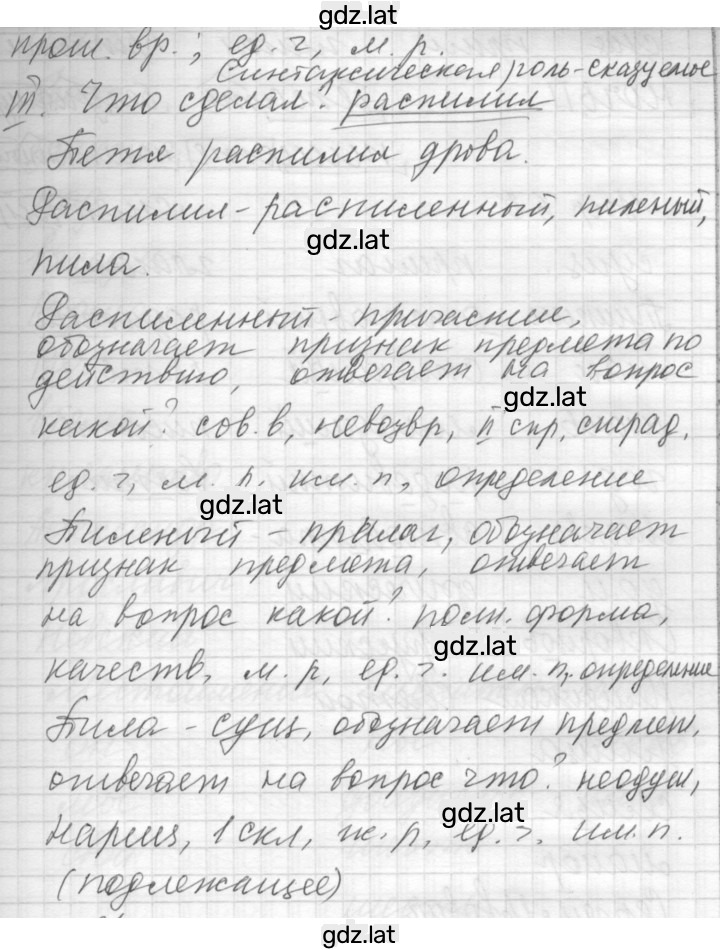 gdz.lat
прош. вр.; ед. ч, м. р.
Синтаксическая роль-сказуемое
III. Что сделал? распилил
Петя распилил дрова.
Распилил-распиленный, пиленый,
gdz.lat
пила.
Распиленный - причастие,
обозначает признак предмета по
действию, отвечает на вопрос
gdz.lat
какой? сов. в, невозвр, II спр, страд,
ед. ч, м. р. им. п., определение
gdz.lat
Пиленый - прилаг, обозначает
признак предмета, отвечает
на вопрос какой? полн. форма,
gdz.lat
качеств, м. р, ед. ч. им. п, определение
Пила - сущ, обозначает предмет,
отвечает на вопрос что? неодуш,
gdz.lat
нариц, 1 скл, ж. р, ед. ч. им. п.
(подлежащее)
gdz.lat